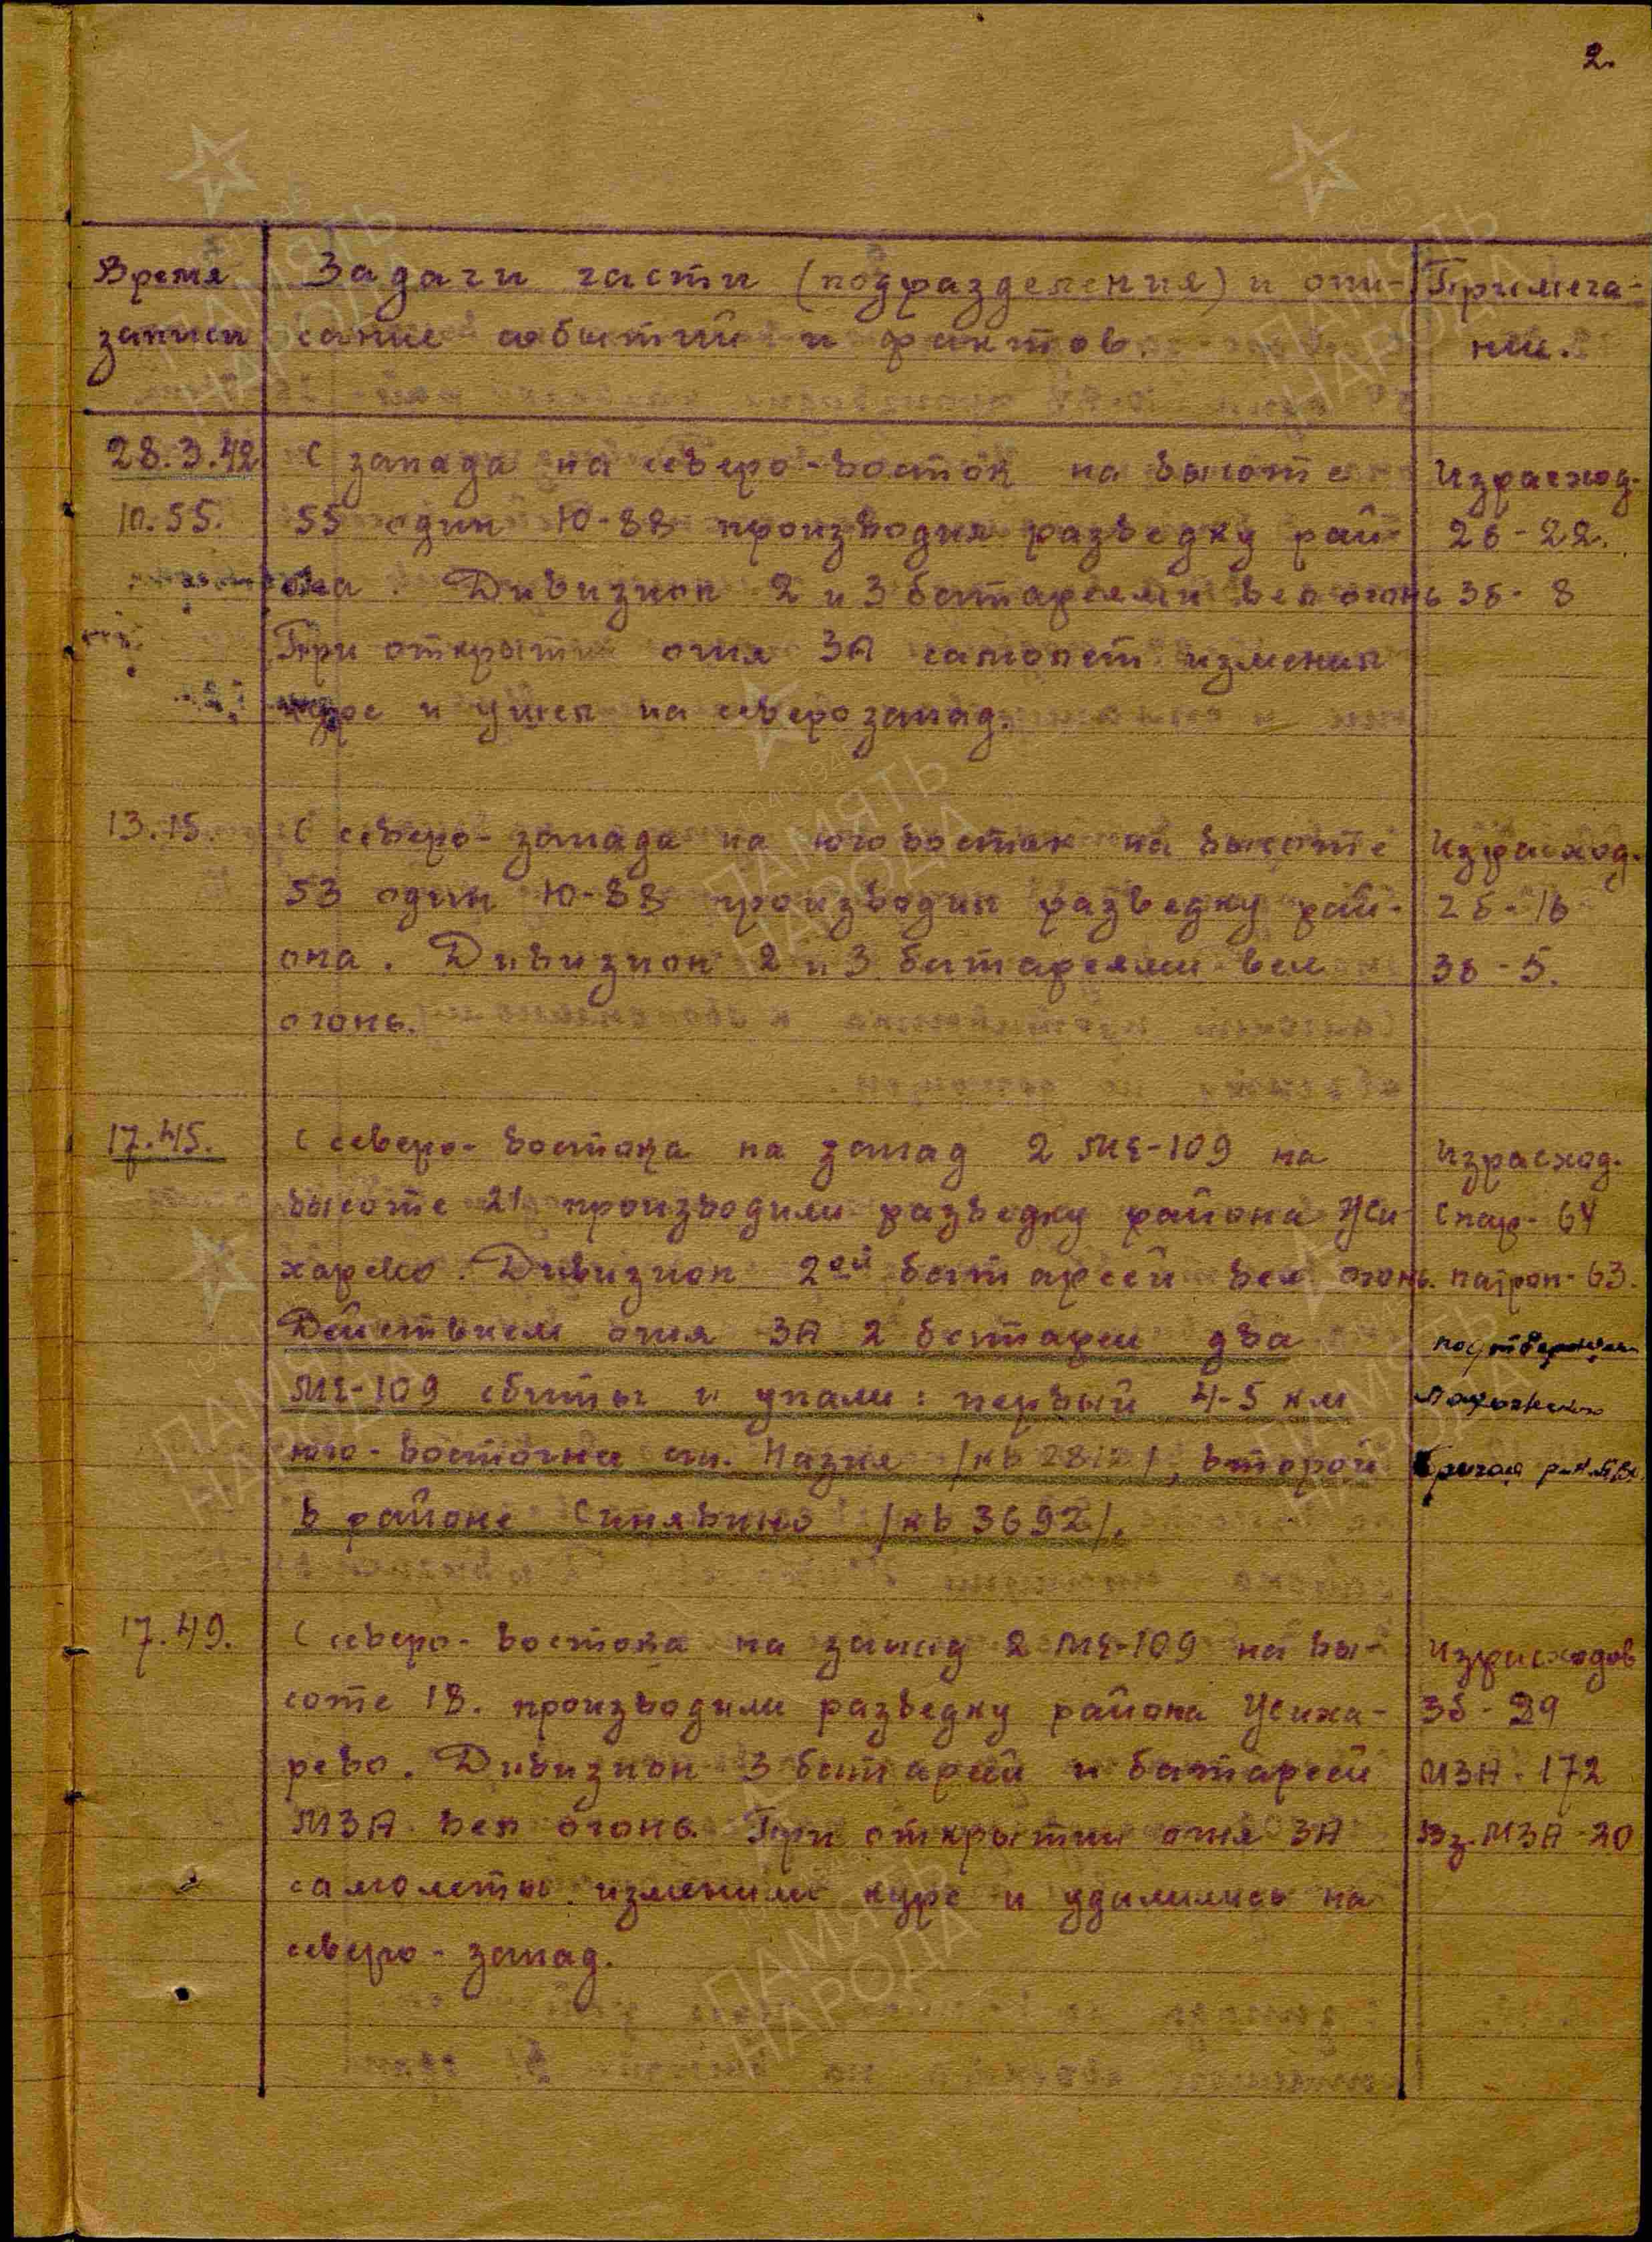 2.
Время Задачи части (подразделения) и опи- Примеча-
записи сание событий и фактов. ния.
28.3.42 С запада на северо-восток на высоте Израсход.
10.55. 55 один Ю-88 производил разведку рай- 2б-22.
она. Дивизион 2 и 3 батареями вел огонь 3б-8
При открытии огня ЗА самолет изменил
курс и ушел на северо запад.
13.15. С северо-запада на юго восток на высоте Израсход.
53 один Ю-88 производил разведку рай- 2б-16
она. Дивизион 2 и 3 батареями вел 3б-5.
огонь.
17.45. С северо-востока на запад 2 МЕ-109 на Израсход.
высоте 21 производили разведку района Уси- Снар-64
харево. Дивизион 2ой батареей вел огонь. патрон-63.
Действием огня ЗА 2 батареи два
МЕ-109 сбиты и упали: первый 4-5 км
юго-восточнее ст. Назия /кв 2812/, второй
в районе Синявино /кв 3692/.
17.49. С северо-востока на запад 2 МЕ-109 на вы- Израсходов
соте 18. производили разведку района Усиха- 3б-29
рево. Дивизион 3 батареей и батареей МЗА-172
МЗА вел огонь. При открытии огня ЗА Вз.МЗА-20
самолеты изменили курс и удалились на
северо-запад.
ПАМЯТЬ
НАРОДА
ПАМЯТЬ
НАРОДА
ПАМЯТЬ
НАРОДА
ПАМЯТЬ
НАРОДА
ПАМЯТЬ
НАРОДА
ПАМЯТЬ
НАРОДА